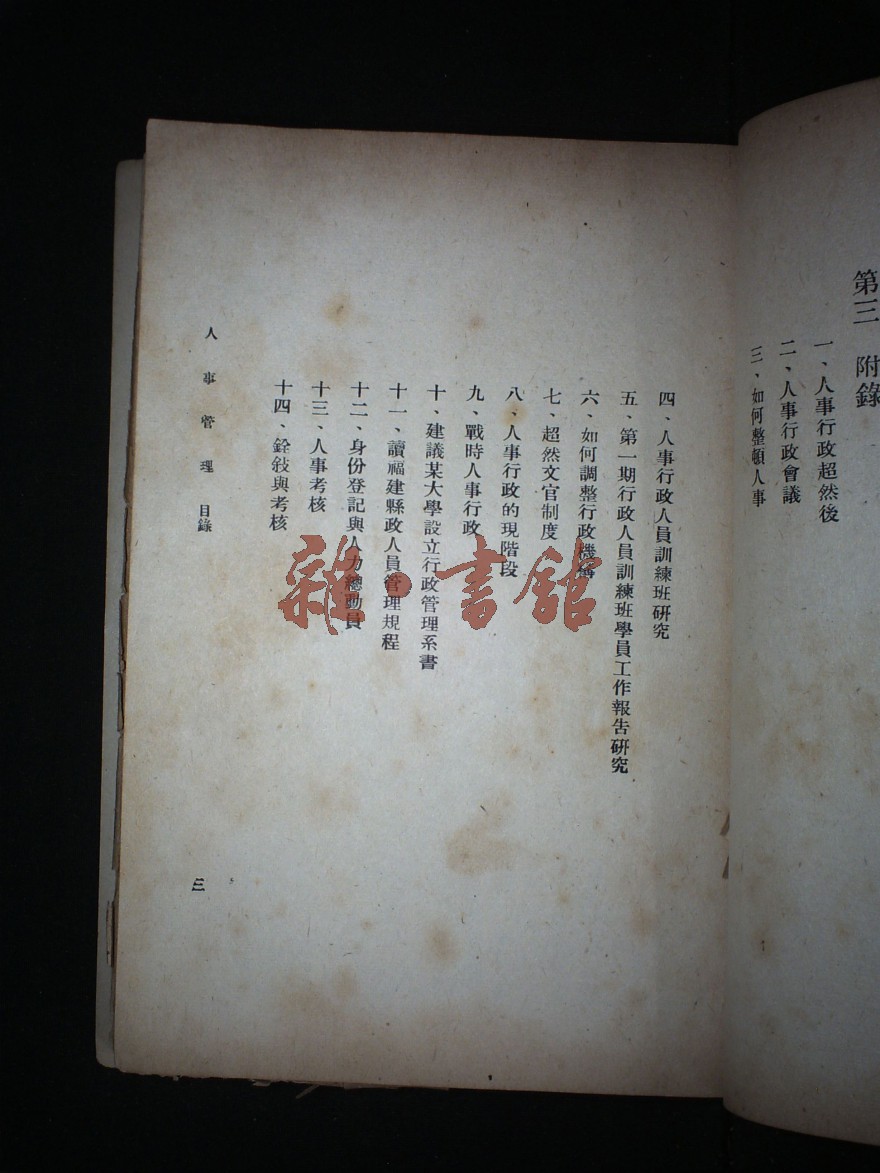 第三 附錄
一、人事行政超然後
二、人事行政會議
三、如何整頓人事
四、人事行政人員訓練班研究
五、第一期行政人員訓練班學員工作報告研究
六、如何調整行政機構
七、超然文官制度
八、人事行政的現階段
九、戰時人事行政
十、建議某大學設立行政管理系書
十一、讀福建縣政人員管理規程
十二、身份登記與人力總動員
十三、人事考核
十四、銓敍與考核
人事管理 目錄
三
雜·書館